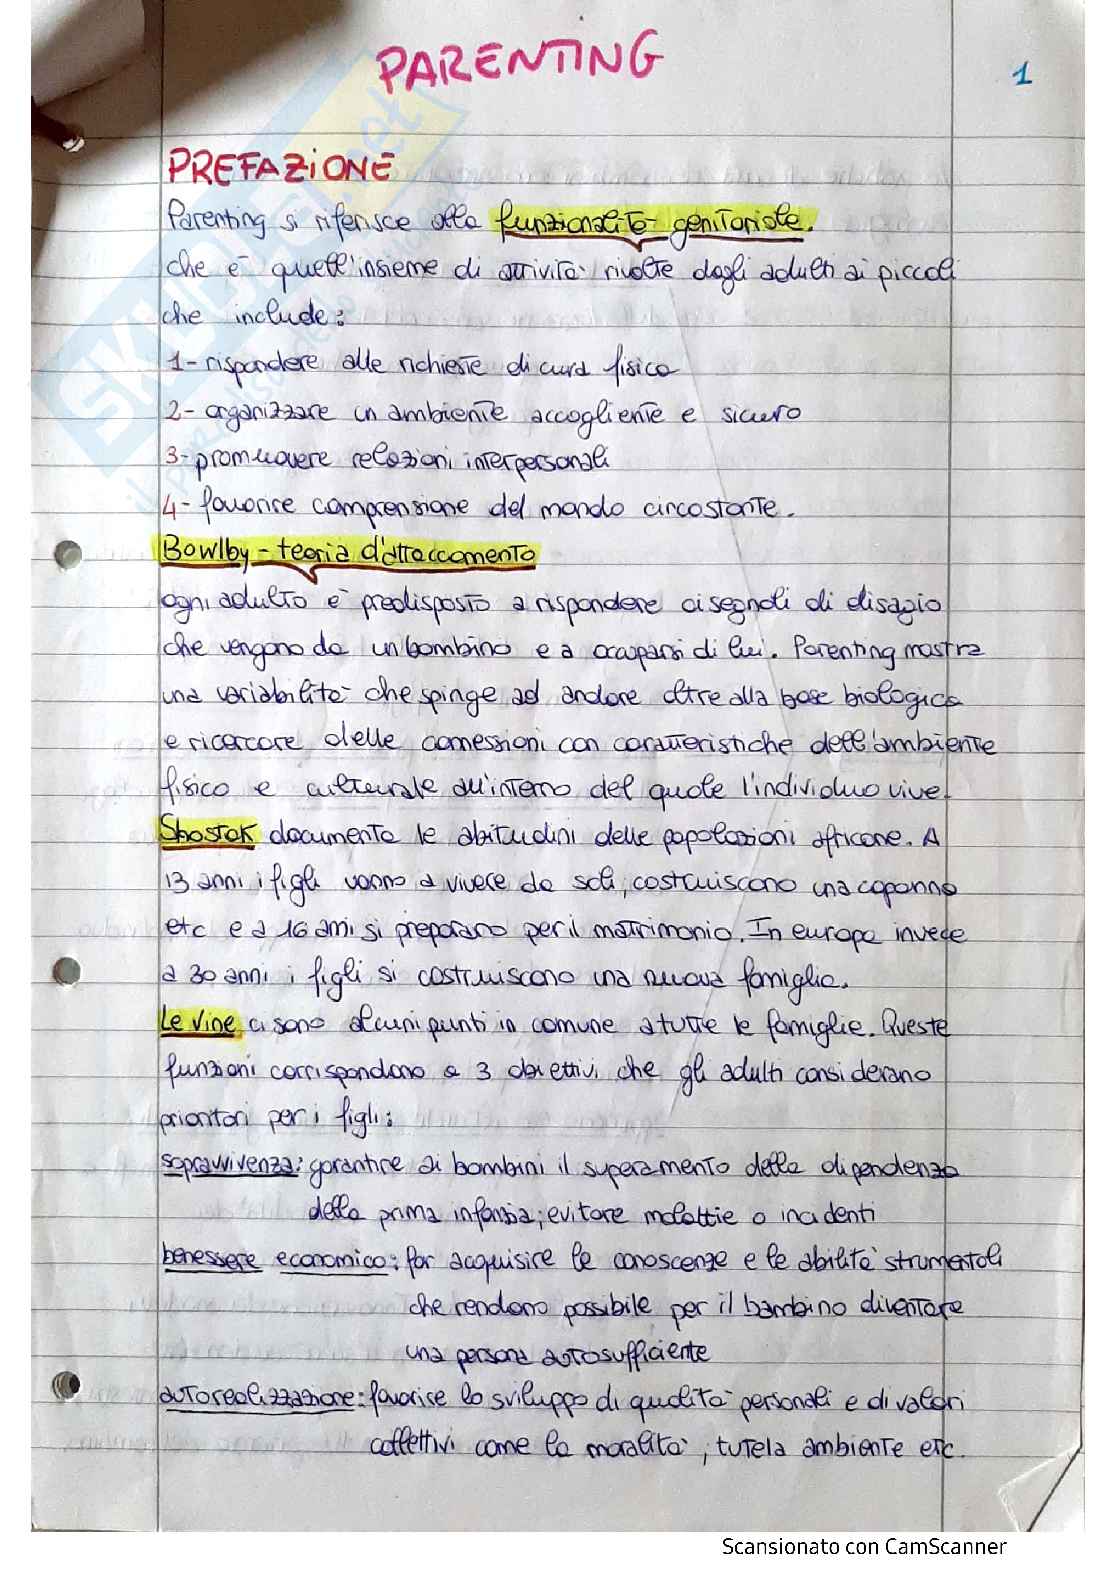 PARENTING
1
PREFAZIONE
Parenting si riferisce alla funzionalità genitoriale.
che è quell'insieme di attività rivolte dagli adulti ai piccoli
che include:
1- rispondere alle richieste di cura fisica
2- organizzare un ambiente accogliente e sicuro
3- promuovere relazioni interpersonali
4- favorire comprensione del mondo circostante.
Bowlby - teoria d'attaccamento
ogni adulto è predisposto a rispondere ai segnali di disagio
che vengono da un bambino e a occuparsi di lui. Parenting mostra
una variabilità che spinge ad andare oltre alla base biologica
e ricercare delle connessioni con caratteristiche dell'ambiente
fisico e culturale all'interno del quale l'individuo vive.
Shostak documenta le abitudini delle popolazioni africane. A
13 anni i figli vanno a vivere da soli, costruiscono una capanna
etc e a 16 anni si preparano per il matrimonio. In europa invece
a 30 anni i figli si costruiscono una nuova famiglia.
Le Vine ci sono alcuni punti in comune a tutte le famiglie. Queste
funzioni corrispondono a 3 obiettivi che gli adulti considerano
prioritari per i figli:
sopravvivenza: garantire ai bambini il superamento della dipendenza
della prima infanzia; evitare malattie o incidenti
benessere economico: far acquisire le conoscenze e le abilità strumentali
che rendano possibile per il bambino diventare
una persona autosufficiente
autorealizzazione: favorire lo sviluppo di qualità personali e di valori
collettivi come la moralità, tutela ambiente etc.
Scansionato con CamScanner